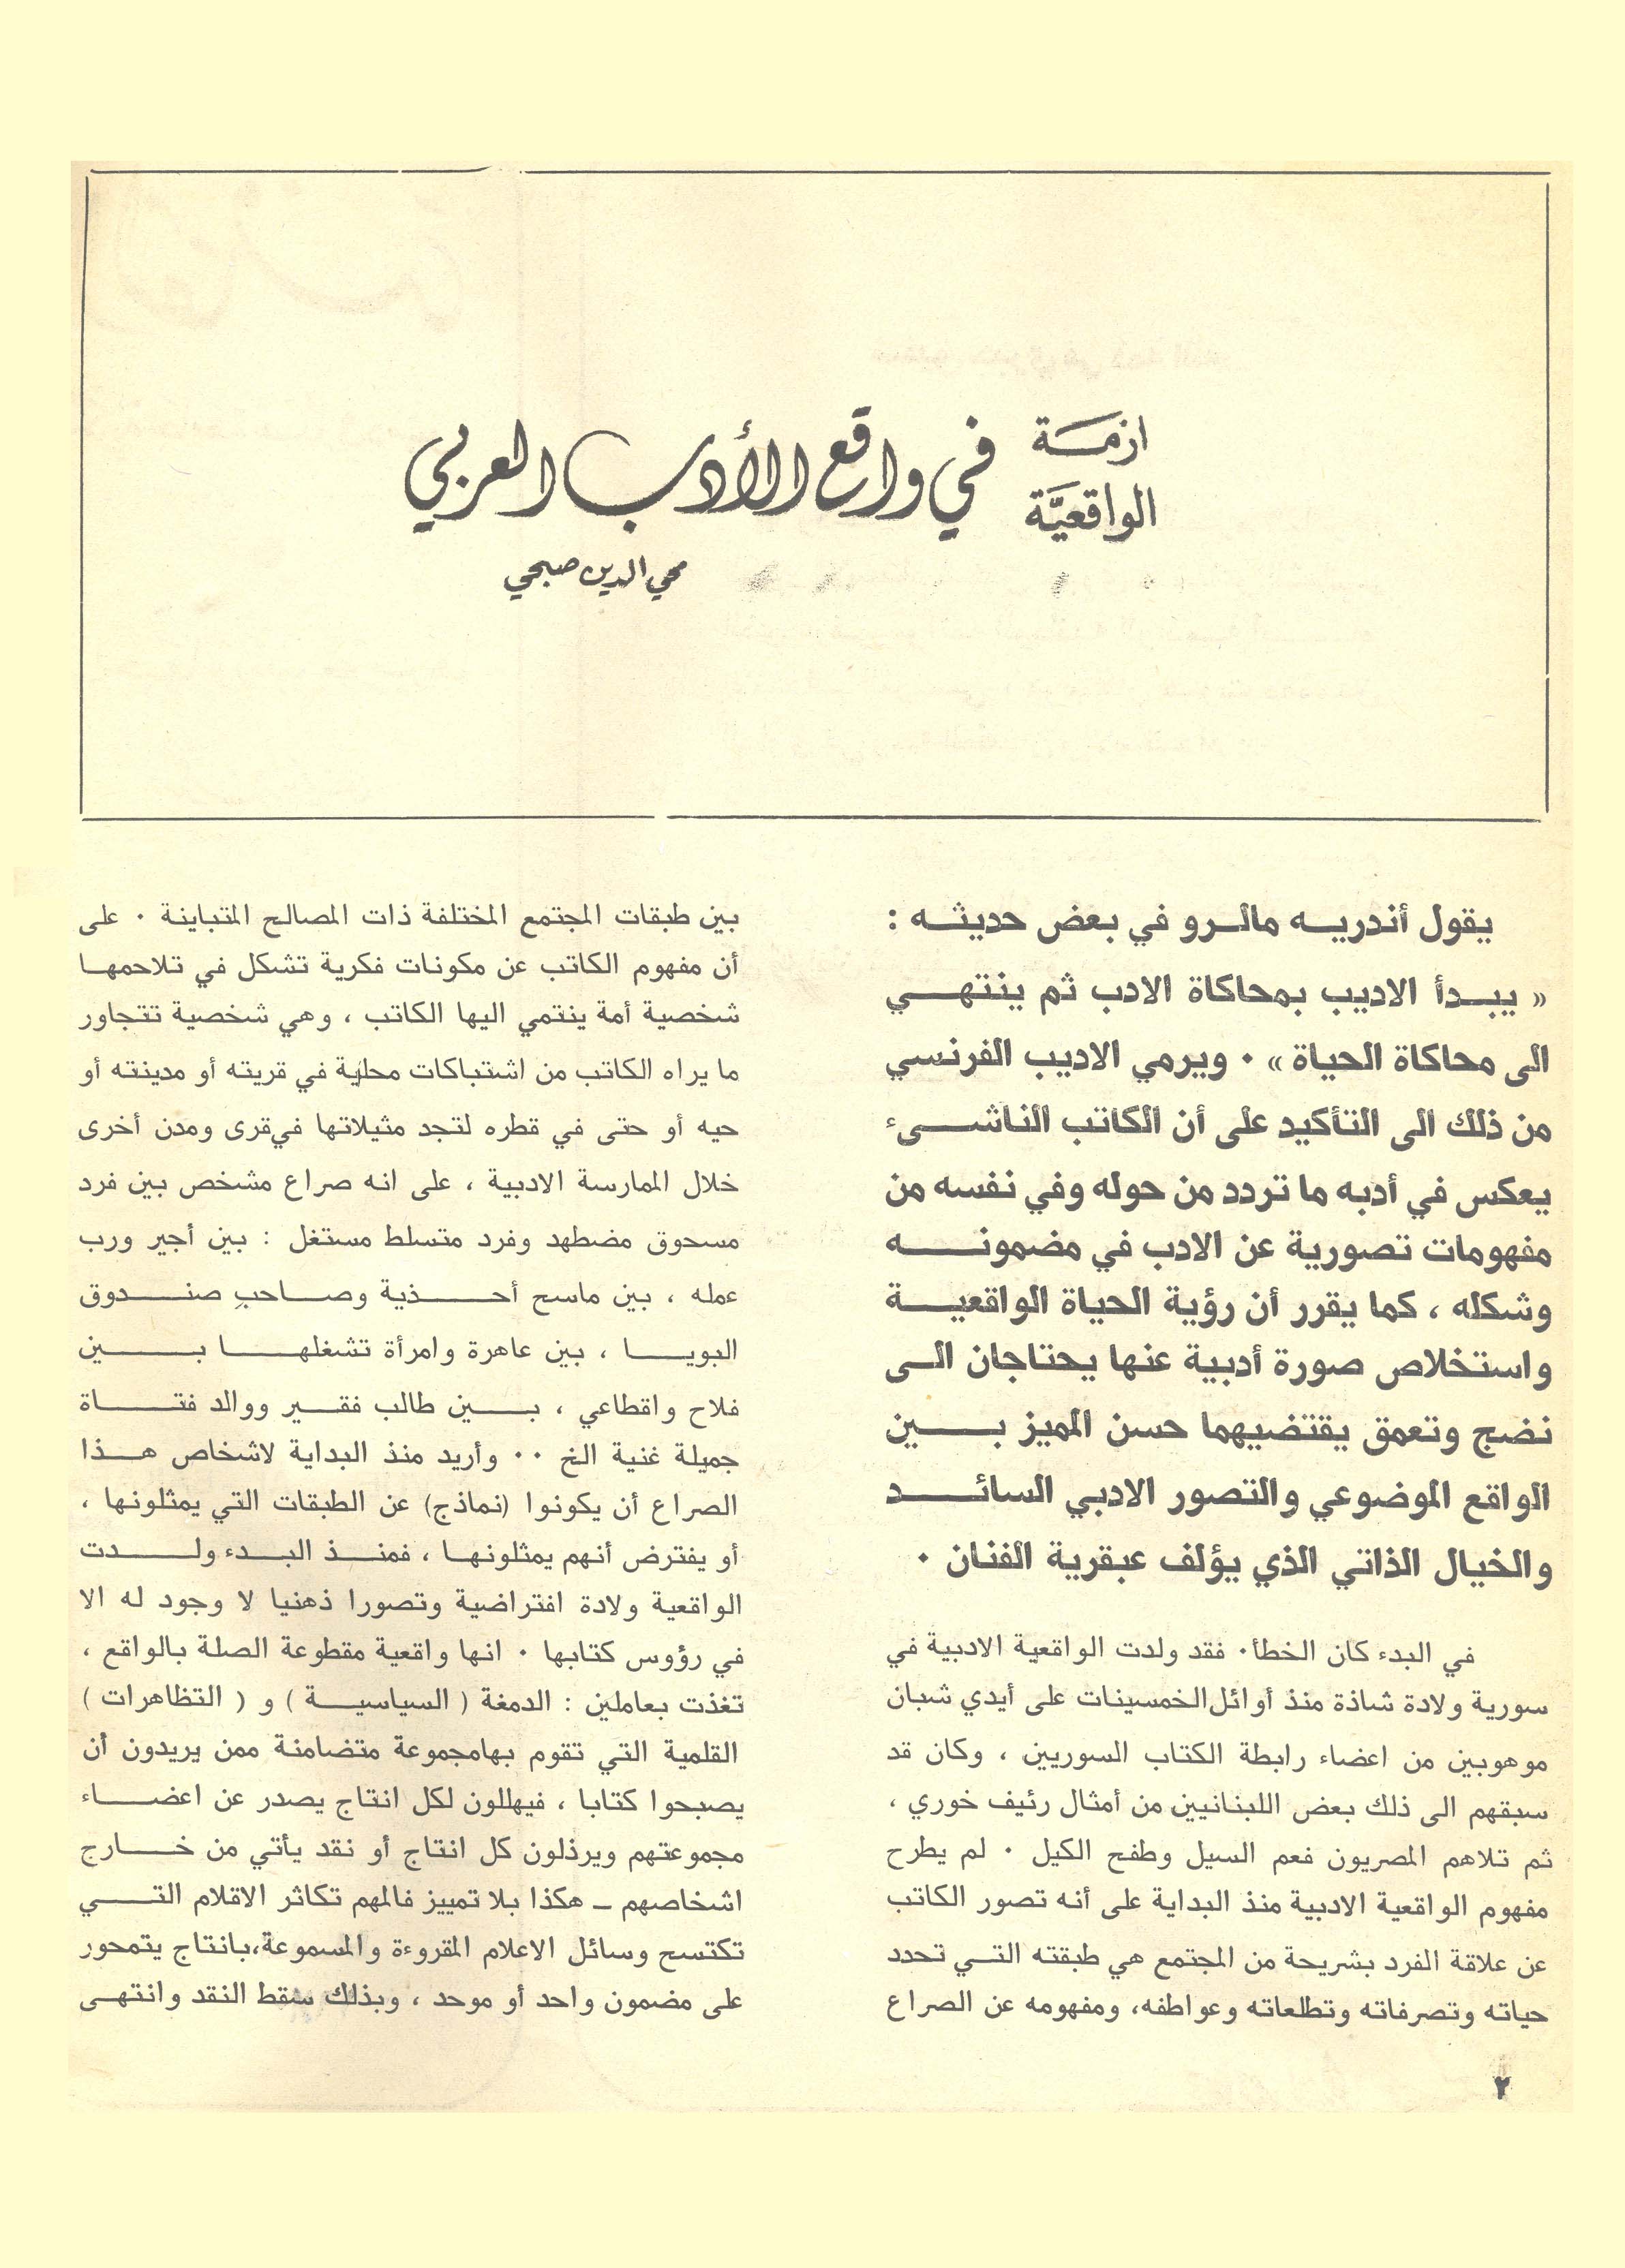 ازمة
الواقعيّة
في واقع الأدب العربي
محي الدين صبحي
يقول أندريه مالرو في بعض حديثه :
« يبدأ الاديب بمحاكاة الادب ثم ينتهي
الى محاكاة الحياة » ٠ ويرمي الاديب الفرنسي
من ذلك الى التأكيد على أن الكاتب الناشىء
يعكس في أدبه ما تردد من حوله وفي نفسه من
مفهومات تصورية عن الادب في مضمونه
وشكله ، كما يقرر أن رؤية الحياة الواقعية
واستخلاص صورة أدبية عنها يحتاجان الى
نضج وتعمق يقتضيهما حسن الميز بين
الواقع الموضوعي والتصور الادبي السائد
والخيال الذاتي الذي يؤلف عبقرية الفنان ٠
في البدء كان الخطأ٠ فقد ولدت الواقعية الادبية في
سورية ولادة شاذة منذ أوائل الخمسينات على أيدي شبان
موهوبين من اعضاء رابطة الكتاب السوريين ، وكان قد
سبقهم الى ذلك بعض اللبنانيين من أمثال رئيف خوري ،
ثم تلاهم المصريون فعم السيل وطفح الكيل ٠ لم يطرح
مفهوم الواقعية الادبية منذ البداية على أنه تصور الكاتب
عن علاقة الفرد بشريحة من المجتمع هي طبقته التي تحدد
حياته وتصرفاته وتطلعاته وعواطفه، ومفهومه عن الصراع
بين طبقات المجتمع المختلفة ذات المصالح المتباينة ٠ على
أن مفهوم الكاتب عن مكونات فكرية تشكل في تلاحمها
شخصية أمة ينتمي اليها الكاتب ، وهي شخصية تتجاور
ما يراه الكاتب من اشتباكات محلية في قريته أو مدينته أو
حيه أو حتى في قطره لتجد مثيلاتها في قرى ومدن أخرى
خلال الممارسة الادبية ، على انه صراع مشخص بين فرد
مسحوق مضطهد وفرد متسلط مستغل : بين أجير ورب
عمله ، بين ماسح أحذية وصاحب صندوق
البويا ، بين عاهرة وامرأة تشغلها بين
فلاح واقطاعي ، بين طالب فقير ووالد فتاة
جميلة غنية الخ ٠٠ وأريد منذ البداية لاشخاص هذا
الصراع أن يكونوا (نماذج) عن الطبقات التي يمثلونها ،
أو يفترض أنهم يمثلونها ، فمنذ البدء ولدت
الواقعية ولادة افتراضية وتصورا ذهنيا لا وجود له الا
في رؤوس كتابها ٠ انها واقعية مقطوعة الصلة بالواقع ،
تغذت بعاملين : الدمغة ( السياسية ) و ( التظاهرات )
القلمية التي تقوم بهامجموعة متضامنة ممن يريدون أن
يصبحوا كتابا ، فيهللون لكل انتاج يصدر عن اعضاء
مجموعتهم ويرذلون كل انتاج أو نقد يأتي من خارج
اشخاصهم ــ هكذا بلا تمييز فالمهم تكاثر الاقلام التي
تكتسح وسائل الاعلام المقروءة والمسموعة،بانتاج يتمحور
على مضمون واحد أو موحد ، وبذلك سقط النقد وانتهى
٢